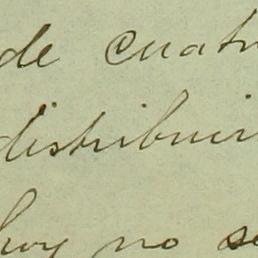 de cuatr
distribui
hoy no se